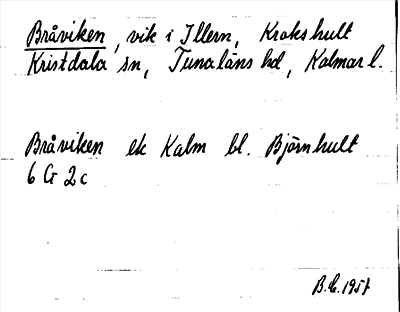 Bråviken, vik i Illern, Krokshult
Kristdala sn, Tunaläns hd, Kalmar l.
Bråviken ek Kalm bl. Björnhult
6 G 2c
1957